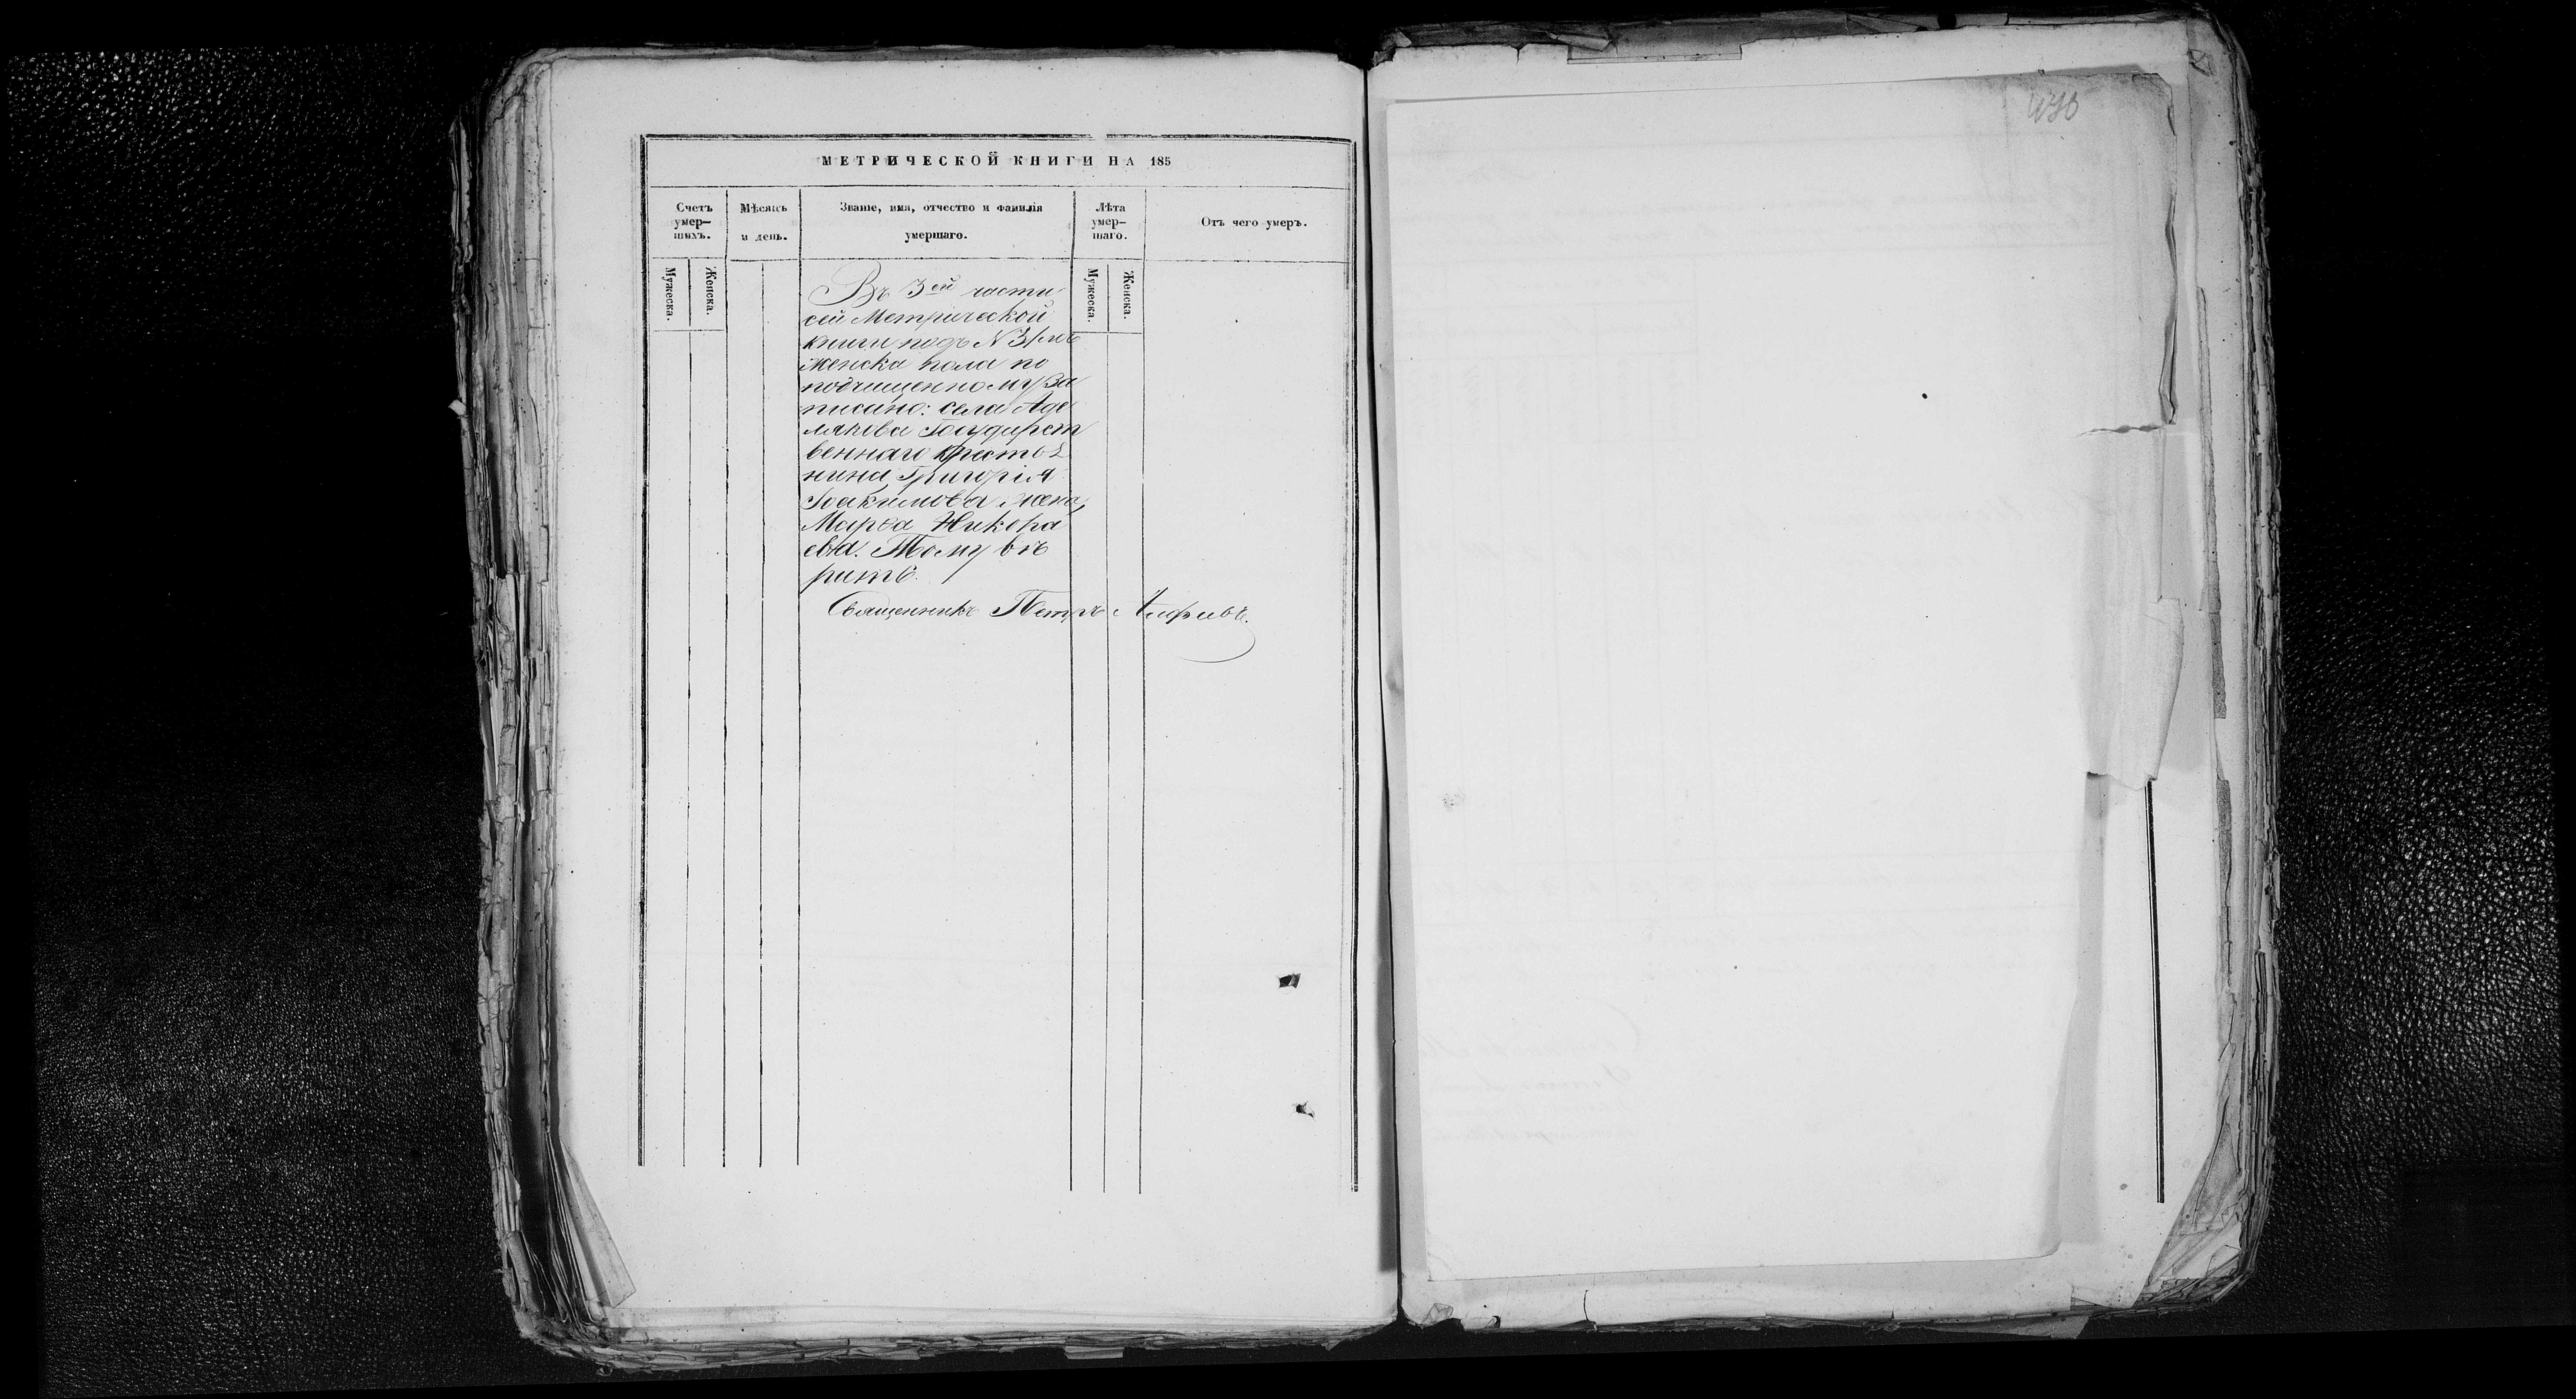 430
МЕТРИЧЕСКОЙ КНИГИ НА 185
Счетъ умер-шихъ.
Мѣсяцъ и день.
Званіе, имя, отчество и фамилія умершаго.
Лѣта умер-шаго.
Отъ чего умеръ.
Мужеска.
Женска.
Мужеска.
Женска.
Въ 3ей части
сей Метрической
книги подъ N 31мъ
женска пола по
подчищенному за
писано: села Аде
лякова Государст
веннаго крестья
нина Григорія
Іоакимова жена,
Марѳа Никора
ева. Тому вѣ
рить.
Священникъ Петръ Алфеевъ.